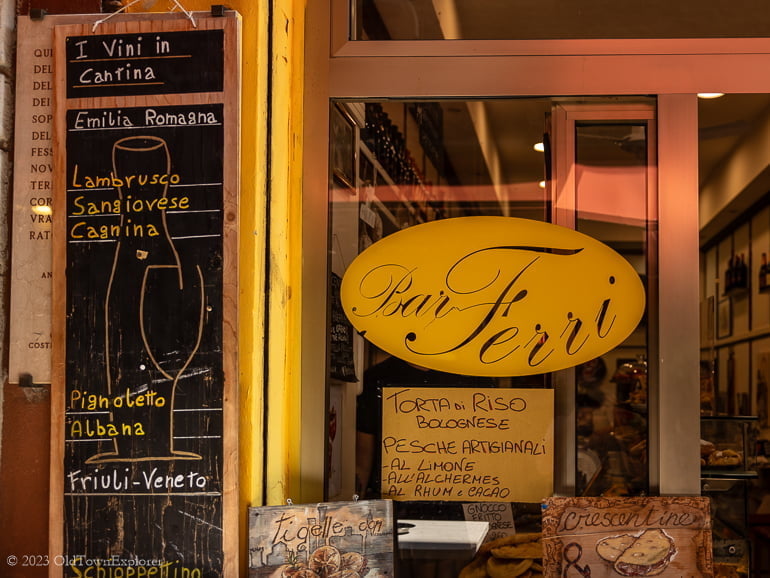 I Vini in
Cantina
Emilia Romagna
Lambrusco
Sangiovese
Cagnina
Pignoletto
Albana
Friuli-Veneto
Schioppettino
QU
DEL
DEL
DEI
SOP
DEL
FESS
NOV
TER
COR
VRA
RAT
AN
COST
Bar Ferri
TORTA DI RISO
BOLOGNESE
PESCHE ARTIGIANALI
- AL LIMONE
- ALL'ALCHERMES
AL RHUM e CACAO
GNOCCO
FRITTO
Tigelle con
Crescentine
&
© 2023 OldTownExplorer